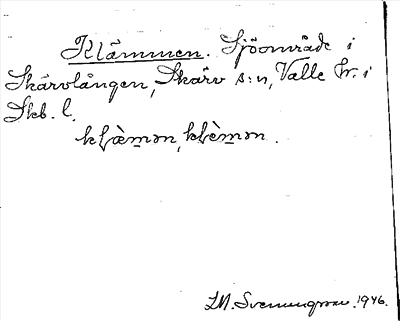 Klämmen. Sjöområde i
Skärvlången, Skärv s:n, Valle hr. i
Skb. l.
kḷæ̀mən, kḷɛ̀mən.
LM. Svenungsson. 1946.